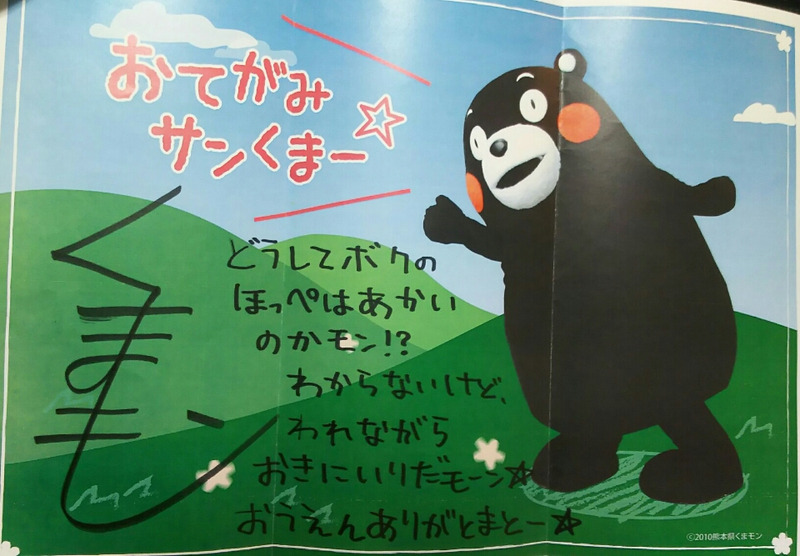 おてがみ
サンくまー☆
くまモン
どうしてボクの
ほっぺはあかい
のかモン!?
わからないけど、
われながら
おきにいりだモーン☆
おうえんありがとまとー☆
©2010熊本県くまモン